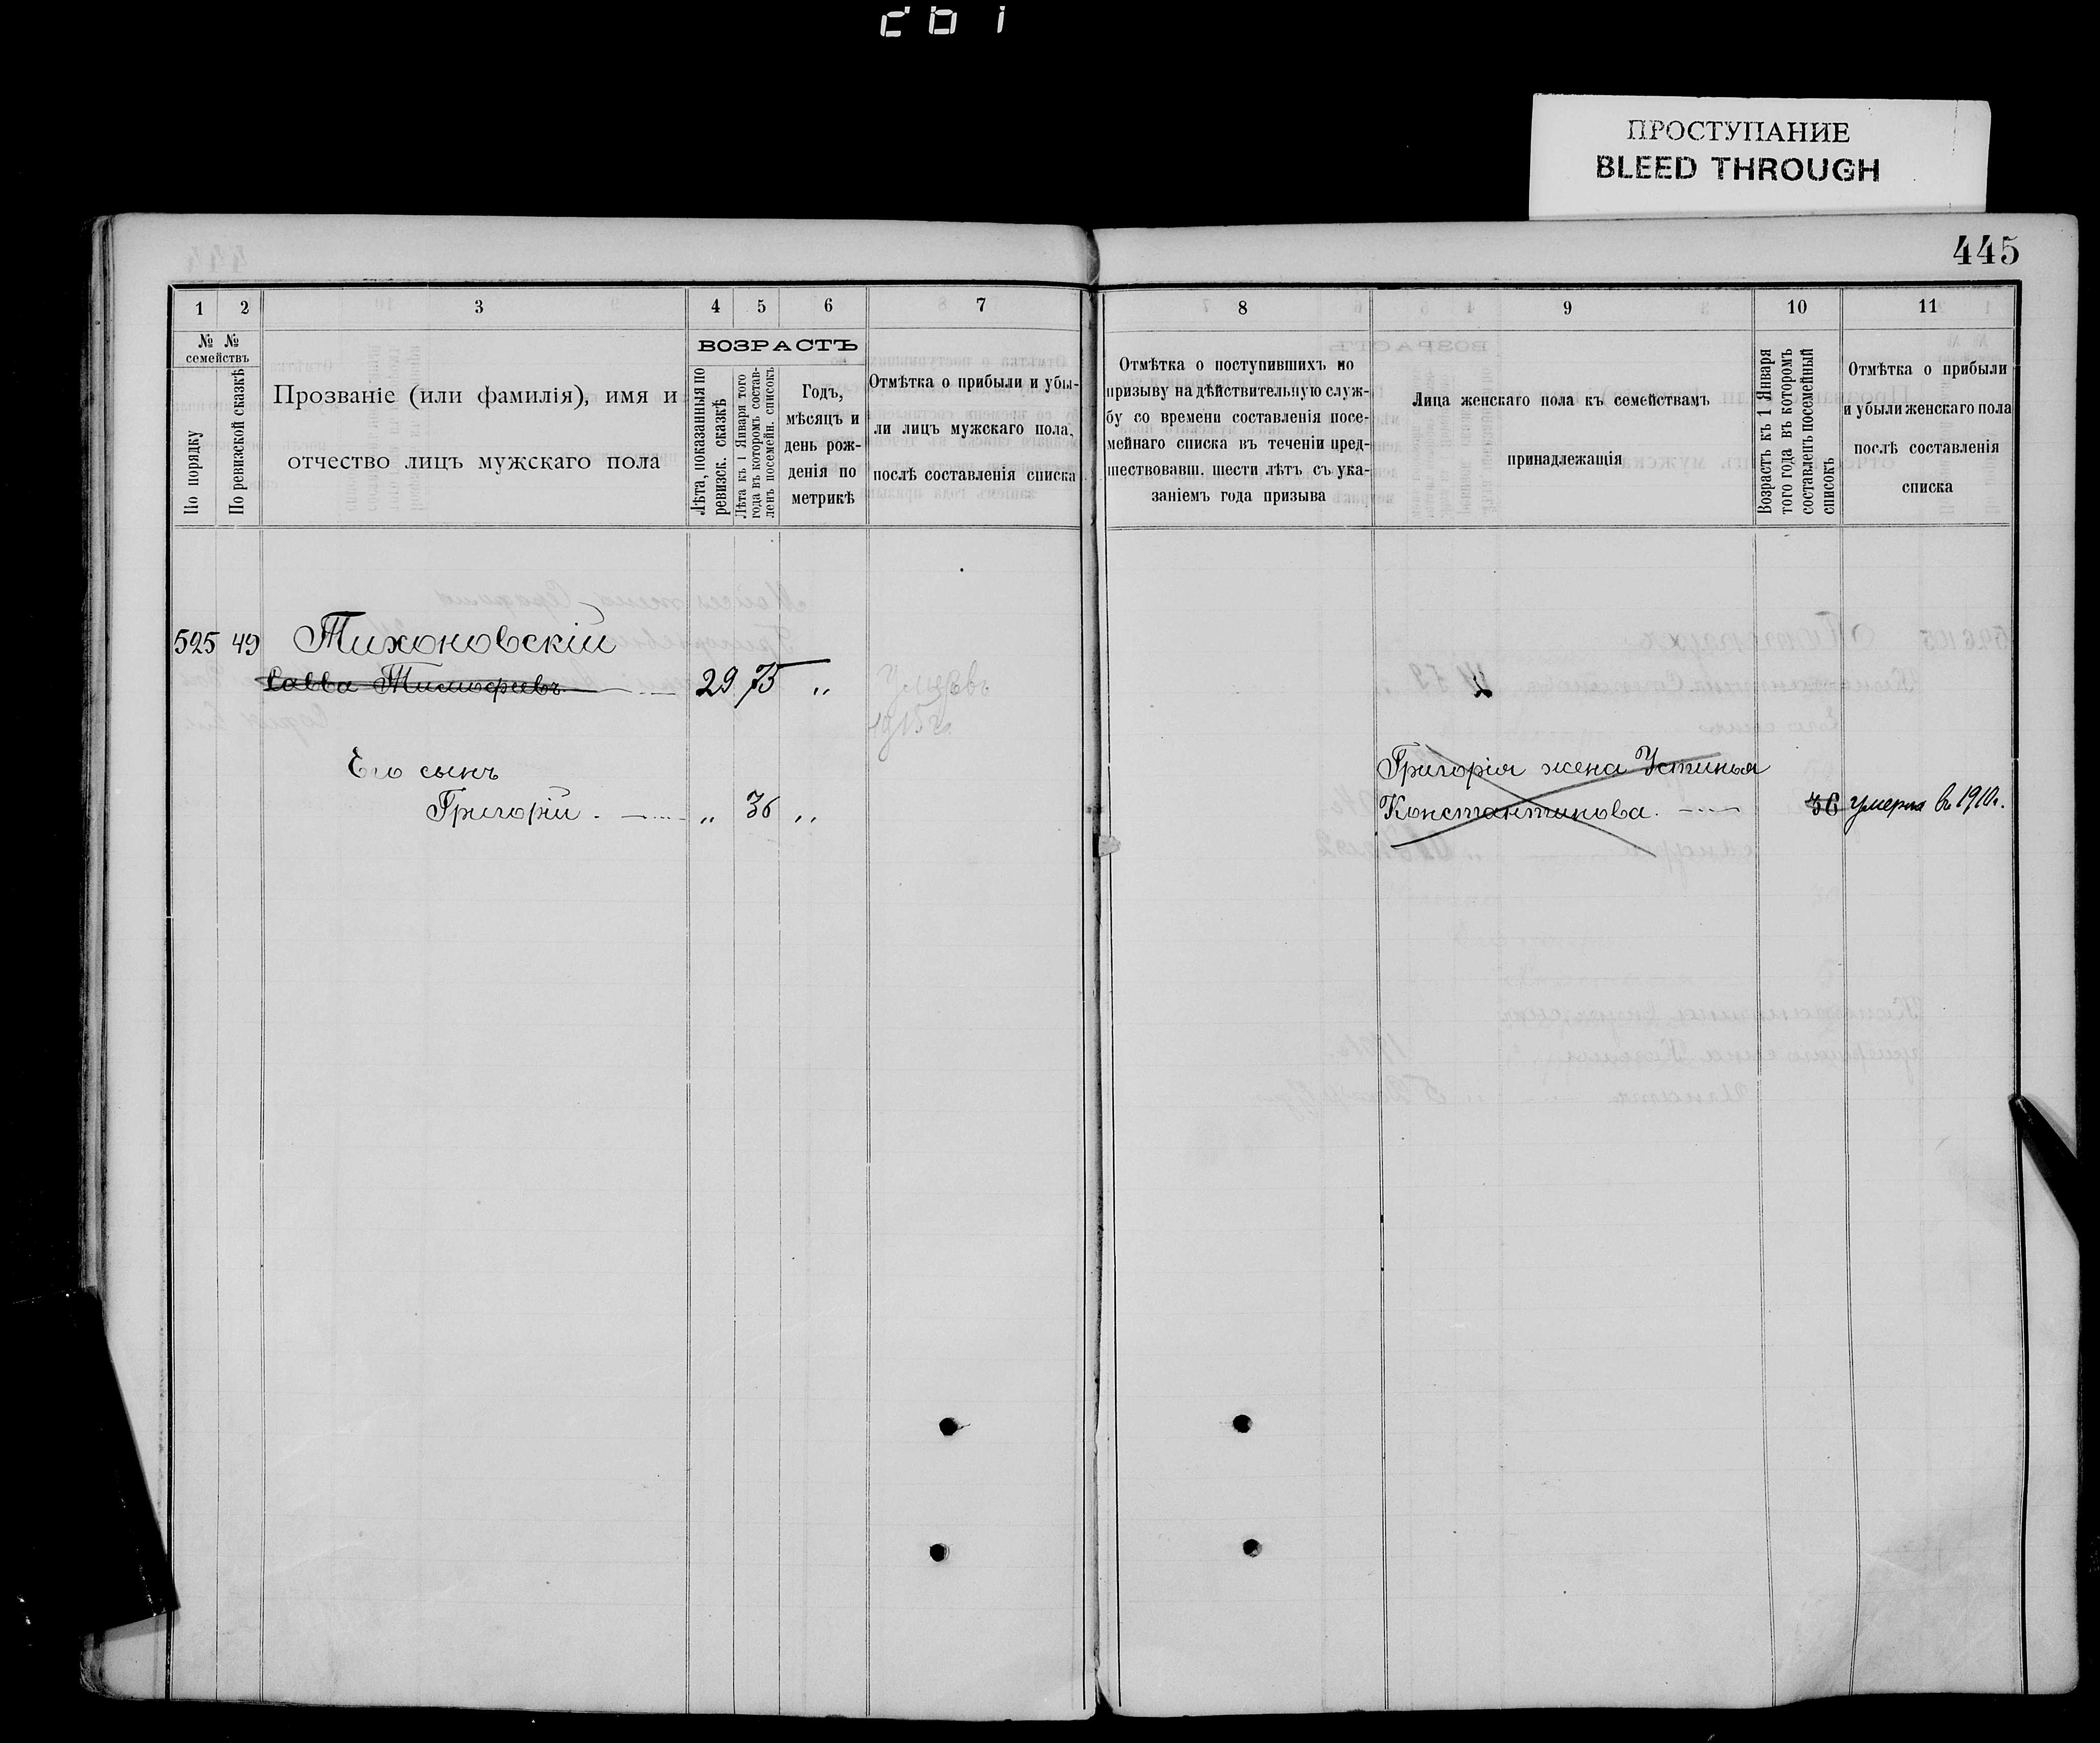 ПРОСТУПАНИЕ
BLEED THROUGH
445
1 2 3 4 5 6 7
№ № семействъ
По порядку
По ревизской сказкѣ
Прозваніе (или фамилія), имя и
отчество лицъ мужскаго пола
ВОЗРАСТЪ
Лѣта, показанныя по
ревизск. сказкѣ
Лѣта къ 1 Января того
года въ которомъ состав-
ленъ посемейн. списокъ
Годъ,
мѣсяцъ и
день рож-
денія по
метрикѣ
Отмѣтка о прибыли и убы-
ли лицъ мужскаго пола,
послѣ составленія списка
8 9 10 11
Отмѣтка о поступившихъ по
призыву на дѣйствительную служ-
бу со времени составленія посе-
мейнаго списка въ теченіи пред-
шествовавш. шести лѣтъ съ ука-
заніемъ года призыва
Лица женскаго пола къ семействамъ
принадлежащія
Возрастъ къ 1 Января
того года въ которомъ
составленъ посемейный
списокъ
Отмѣтка о прибыли
и убыли женскаго пола
послѣ составленія
списка
525 49 Тихоновскій
Савва Тимофеевъ 29 75 „ Умеръ
1915 г.
Его сынъ
Григорій „ 36 „
Григорія жена Устинья
Константинова. 36 умерла въ 1910 г.